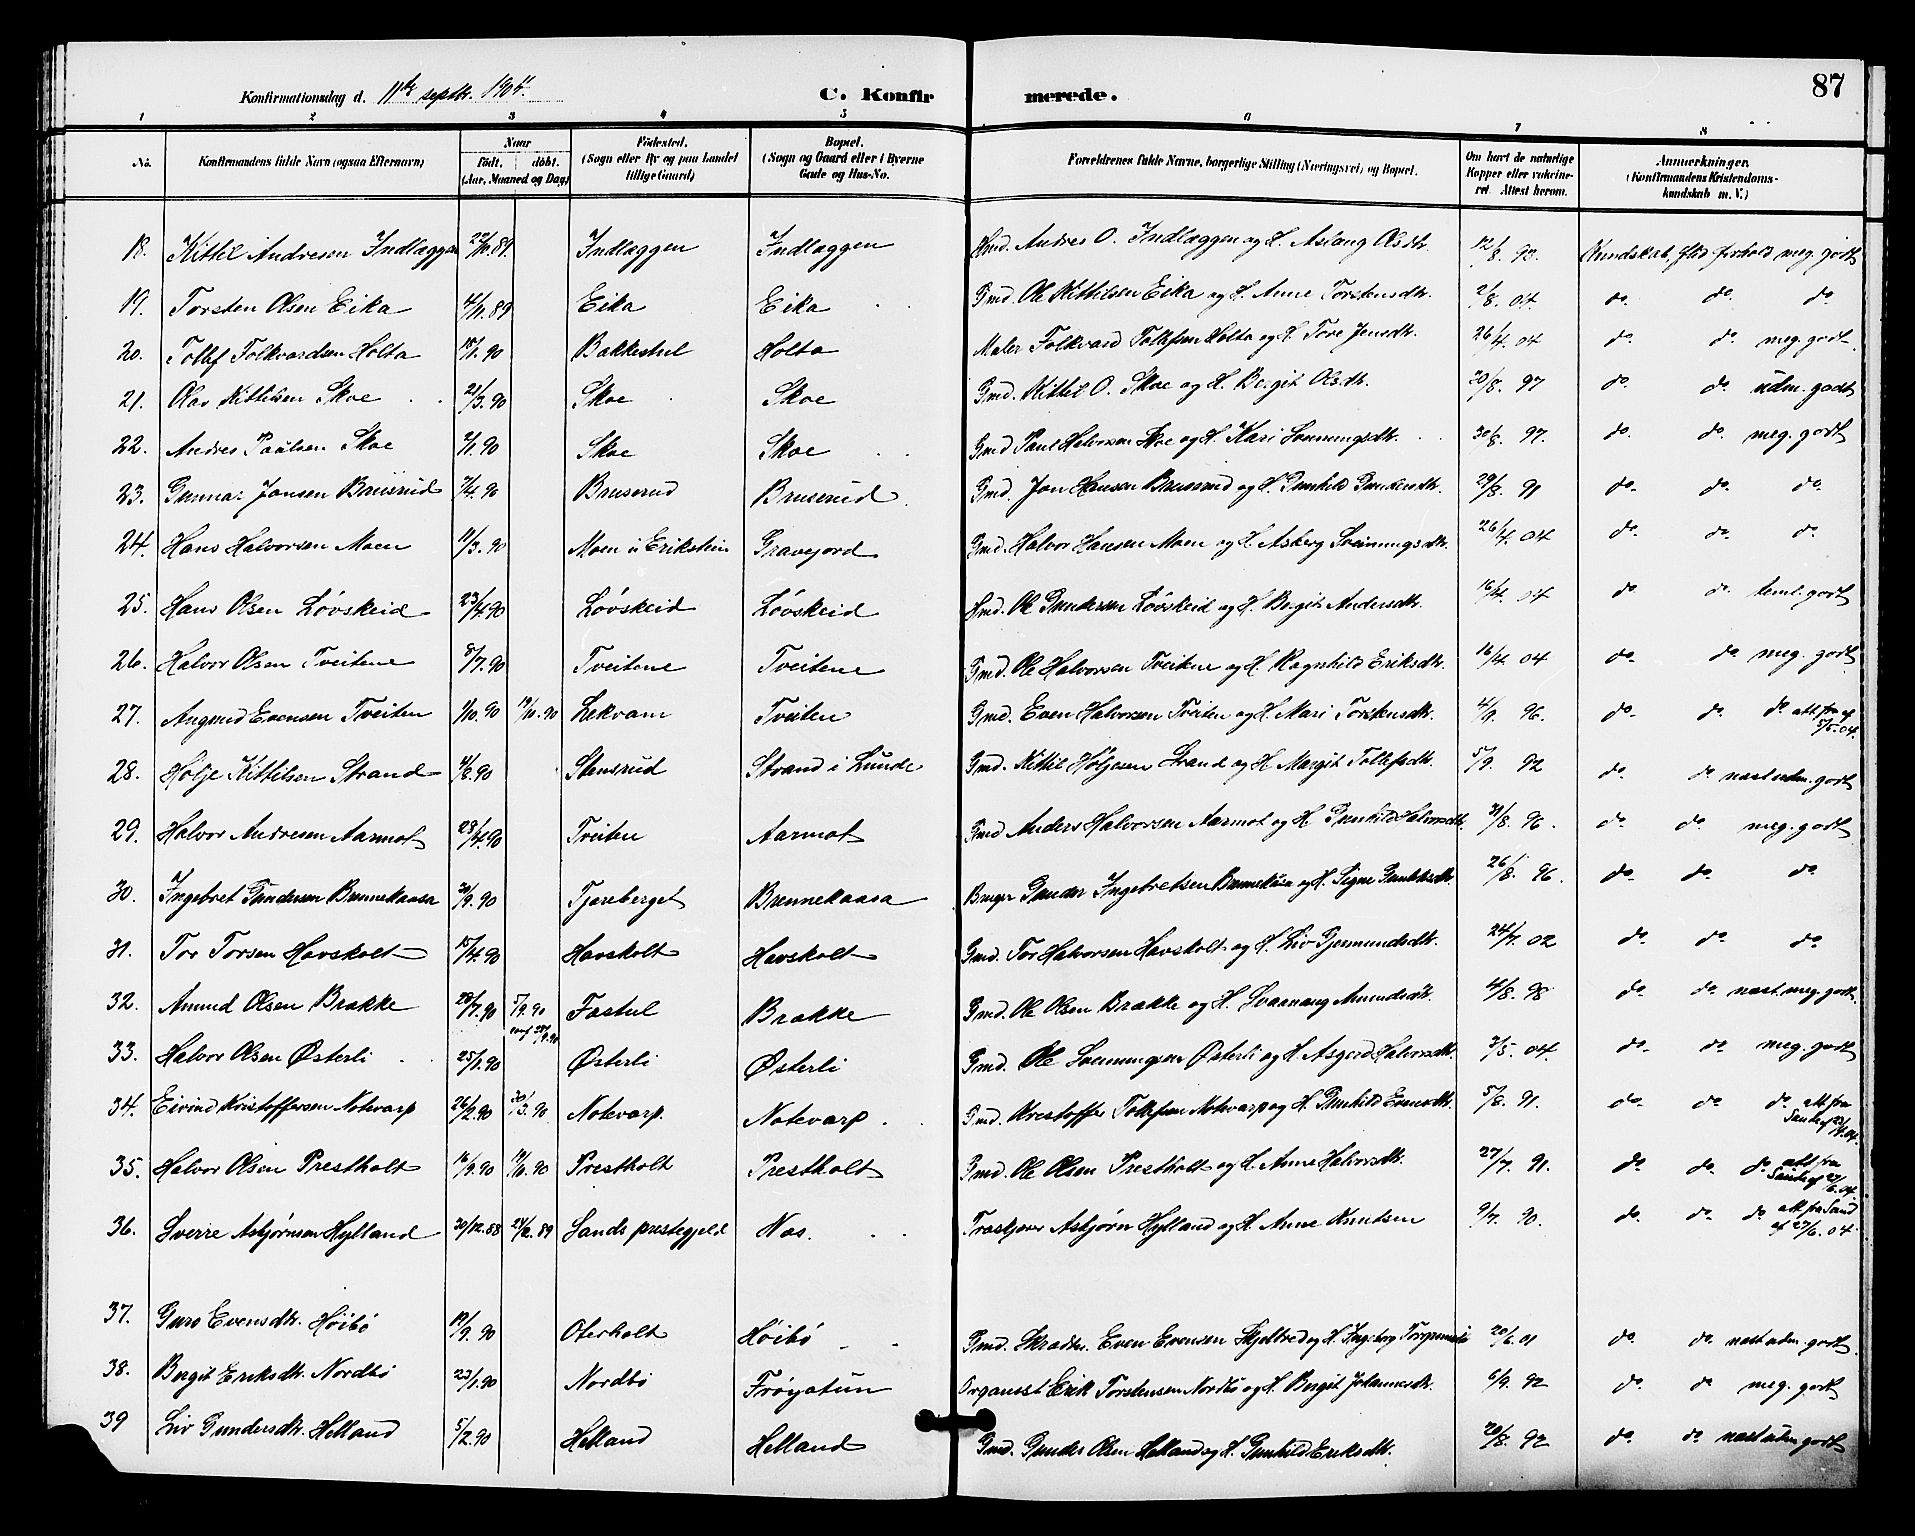 Konfirmationsdag d. 11te septbr. 1904. C. Konfir merede. 87
1 2 3 4 5 6 7 8
No. Konfirmandens fulde Navn (ogsaa Efternavn) Naar født. døbt. (Aar, Maaned og Dag) Födested. (Sogn eller By og paa Landet tillige Gaard) Bopæl. (Sogn og Gaard eller i Byerne Gade og Hus-No. Forældrenes fulde Navne, borgerlige Stilling (Næringsvei) og Bopæl. Om havt de naturlige Kopper eller vakcineret. Attest herom. Anmærkninger. (Konfirmandens Kristendomskundskab m. V.)
18. Kittil Andresen Indlæggen 22/10.89. Indlæggen Indlæggen Hmd. Andres O. Indlæggen og H. Aslaug Olsdtr. 12/8. 93. Kundskab, flid forhold meg. godt
19. Torsten Olsen Eika 12/11.89 Eika Eika Gmd. Ole Kittilsen Eika og H. Anne Torstensdtr. 2/8. 04. do. do. do
20. Tollef Folkvardsen Holta 18/1.90 Bakkestul Holta Maler Folkvard Tollefsen Holta og H. Tore Jensdtr. 26/4. 04 do. do. meg. godt.
21. Olav Kittilsen Skoe 21/3.90 Skoe Skoe Gmd. Kittil O. Skoe og H. Bergit Olsdtr. 30/8. 97 do. do. udm. godt
22. Andres Paulsen Skoe 2/1.90 Skoe Skoe Gmd Paul Halvorsen Skoe og H. Kari Sveinungsdtr. 30/8. 97. do. do. meg. godt
23. Gunnar Jonsen Bruserud 7/4.90 Bruserud Bruserud. Gmd. Jon Hansen Bruserud og H. Gunhild Gundersdtr. 29/8. 91 do. do. do.
24. Hans Halvorsen Moen 11/3.90 Moen u. Erikstein Gravejord Gmd. Halvor Hansen Moen og H. Asberg Sveinungsdtr. 26/4. 04 do. do. do.
25. Hans Olsen Løvskeid 23/4.90 Løvskeid Løvskeid Hmd. Ole Gundersen Løvskeid og H. Bergit Andersdtr. 16/4. 04 do do. teml. godt
26. Halvor Olsen Tveitene 8/7.90 Tveitene Tveitene Gmd. Ole Halvorsen Tveitene og H. Ragnhild Eriksdtr. 16/4. 04 do. do. meg. godt
27. Aagmund Evensen Tveiten 1/10.90 19/10.90 Lekvam Tveiten Gmd. Even Halvorsen Tveiten og H. Mari Torstensdtr. 4/9. 96. do. do. do. att. fra af 5/5.04.
28. Holje Kittilsen Strand 4/8.90 Stensrud Strand i Lunde Gmd. Kittil Høljesen Strand og H. Margit Tollefsdtr. 5/9. 92 do. do. næst udm. godt
29. Halvor Andresen Aarmot 28/4.90 Tveiten Aarmot Gmd Anders Halvorsen Aarmot og H. Gunhild Halvorsdtr. 31/8. 96. do. do. meg. godt
30. Ingebret Gundersen Brennekaasa 30/9.90 Tjæreberget Brennekaasa Gunder Ingebretsen Brennekaasa og H. Signe 26/8. 96. do. do. do.
31. Tor Torsen Havskolt 15/4.90 Havskolt Havskolt Gmd. Tor Halvorsen Havskolt og H. Liv Gjermundsdtr. 24/7. 02 do. do. do
32. Amund Olsen Brække 28/7.90 5/9.90 Fastul Brække Gmd. Ole Olsen Brække og H. Svaanaug Amundsdtr. 4/8. 98 do. do. næst. meg. godt
33. Halvor Olsen Østerli 25/1.90 Østerli Østerli Gmd. Ole Sveinungsen Østerli og H. Asgerd Halvorsdtr. 3/5. 04. do. do. meg. godt
34. Eivind Kristoffersen Notevarp 26/2.90 30/3.90 Notevarp. Notevarp. Gmd. Kristoffer Tollefsen Notevarp og H. Gunhild Evensdtr. 5/8. 91. do. do. do. att. fra Sande af 23/4.04.
35. Halvor Olsen Prestholt 16/9.90 19/10.90 Prestholt Prestholt Gmd. Ole Olsen Prestholt og H. Anne Halvorsdtr. 27/7. 91. do. do. do att fra Sande af 27/6.04.
36. Sverre Asbjørnsen Hylland 20/12.88 24/2.89 Sands prestegjeld Nas. Asbjørn Hylland og H. Anne Knudsen 9/7. 90. do. do. do att. fra Sand af 27/6. 04
37. Guro Evensdtr. Høibø 19/9.90 Oterholt Høibø Gmd. Skrædder. Even Evensen og H. Ingeborg 20/6. 01 do. do. næst udm. godt.
38. Bergit Eriksdtr. Nordbø 23/1.90 Nordbø Frøyatun Organist Erik Torstensen Nordbø og H. Bergit Johannesdtr. 6/9. 92 do. do. meg. godt
39 Liv Gundersdtr. Helland 5/2.90 Helland Helland Gmd. Gunder Olsen Helland og H. Gunhild Eriksdtr. 20/8. 92 do. do. næst udm godt